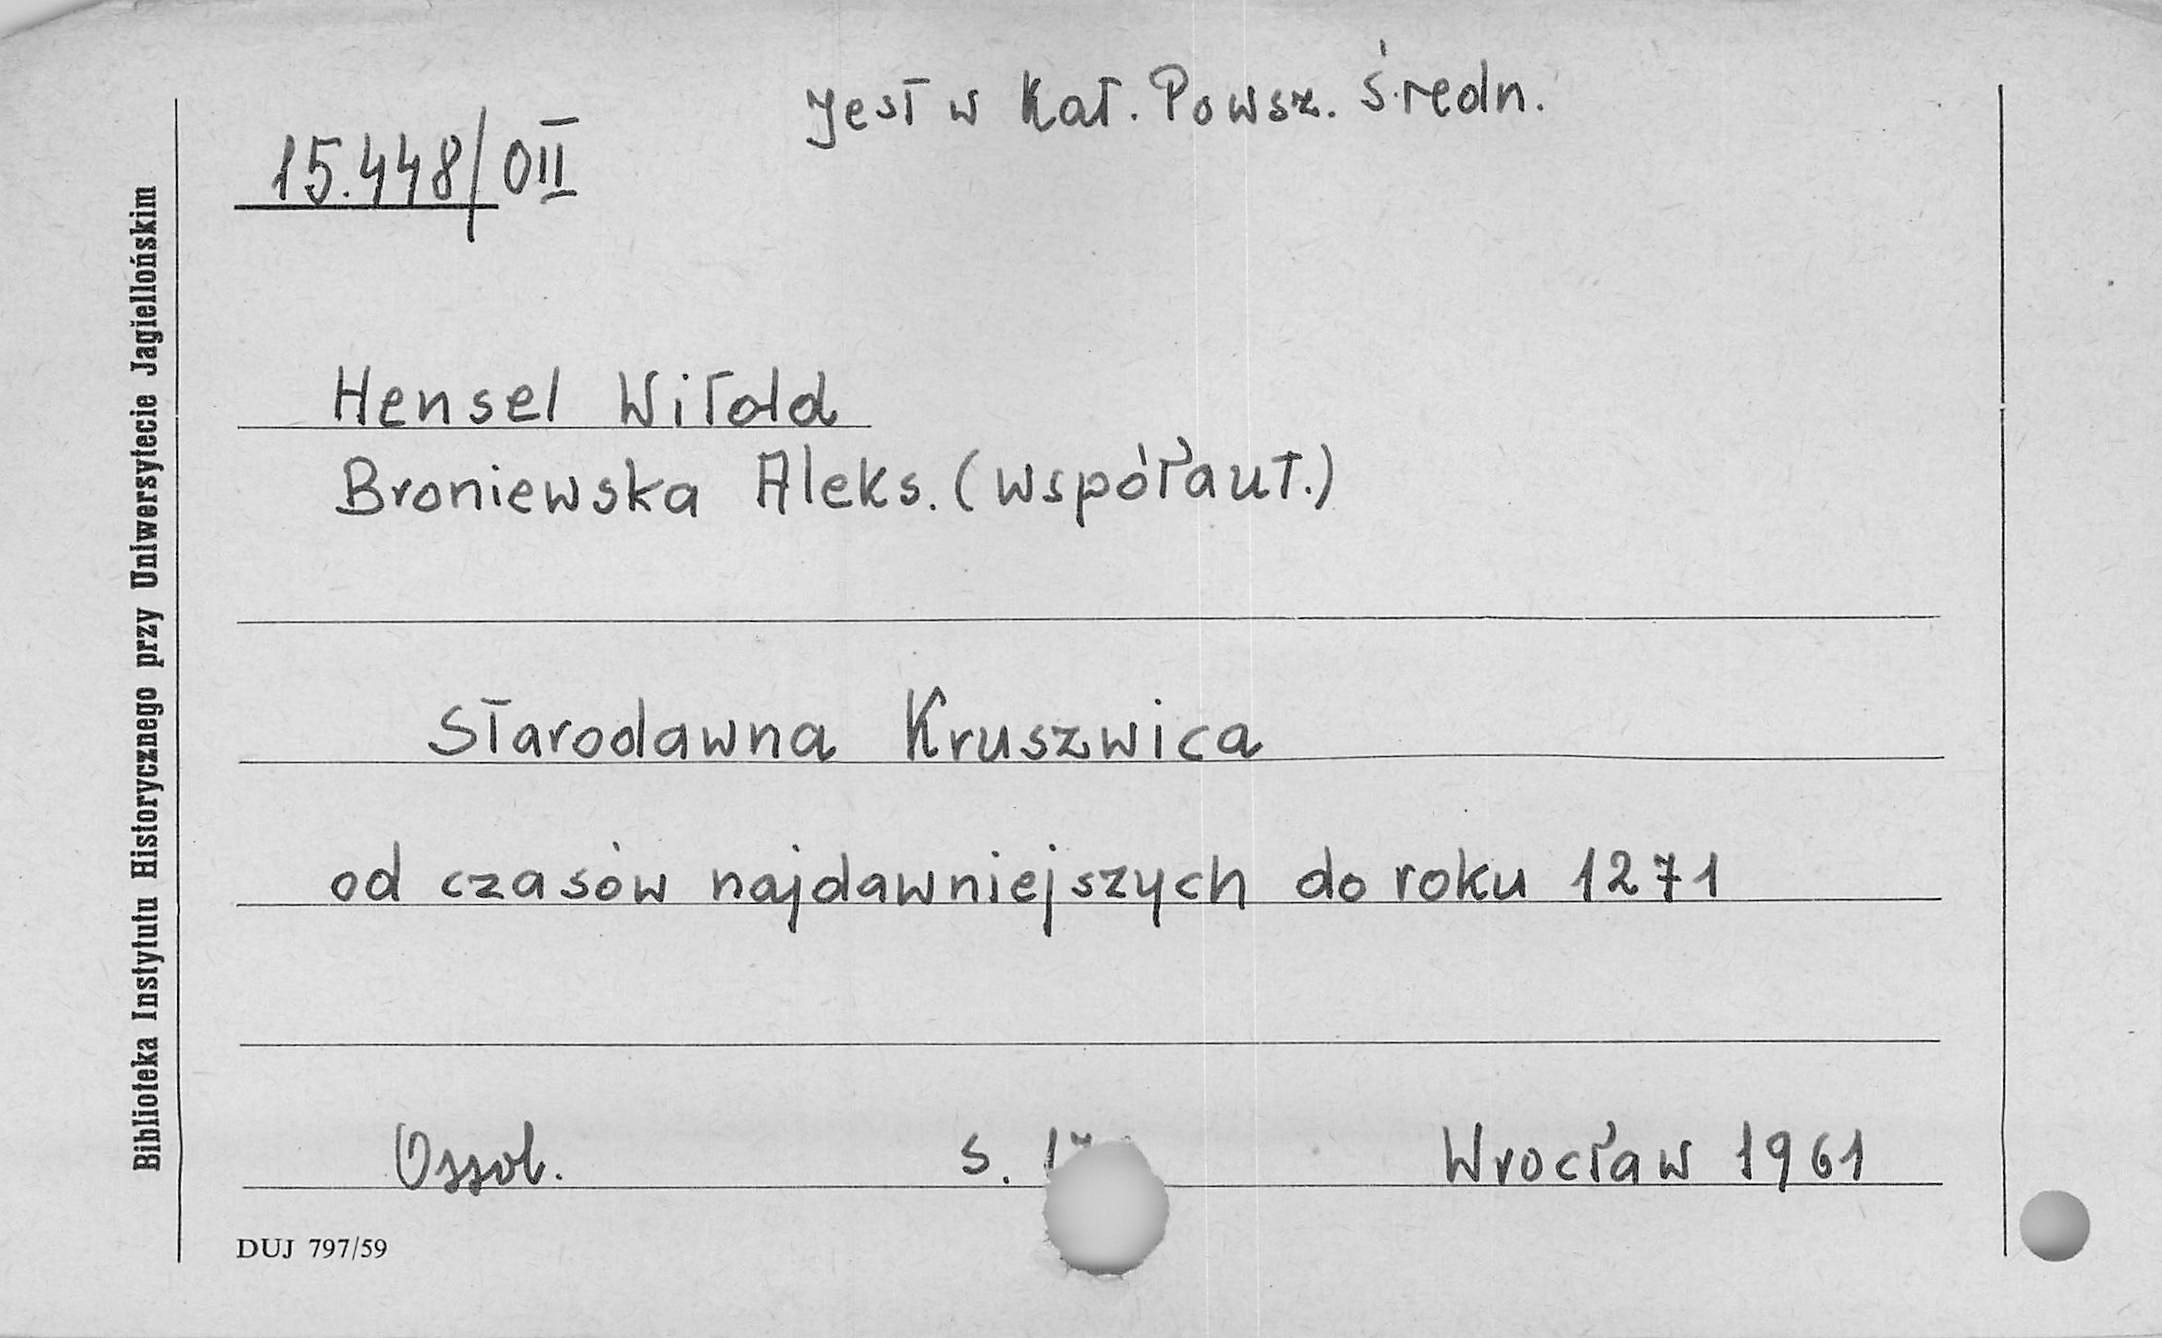 Jest w Kat. Powsz. średn.
15.448/OII
Biblioteka Instytutu Historycznego przy Uniwersytecie Jagiellońskim
Hensel Witold
Broniewska Aleks. (współaut.)
Starodawna Kruszwica
od czasów najdawniejszych do roku 1271
Ossol. s. Wrocław 1961
DUJ 797/59